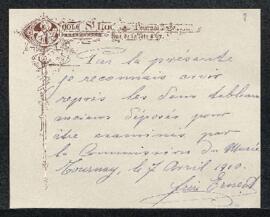 École St Luc Tournai
Par la présente
je reconnais avoir
repris les deux tableaux
anciens déposés pour
être examinés par
la Commission du Musée
Tournay, le 7 Avril 1910.
frère Ernest